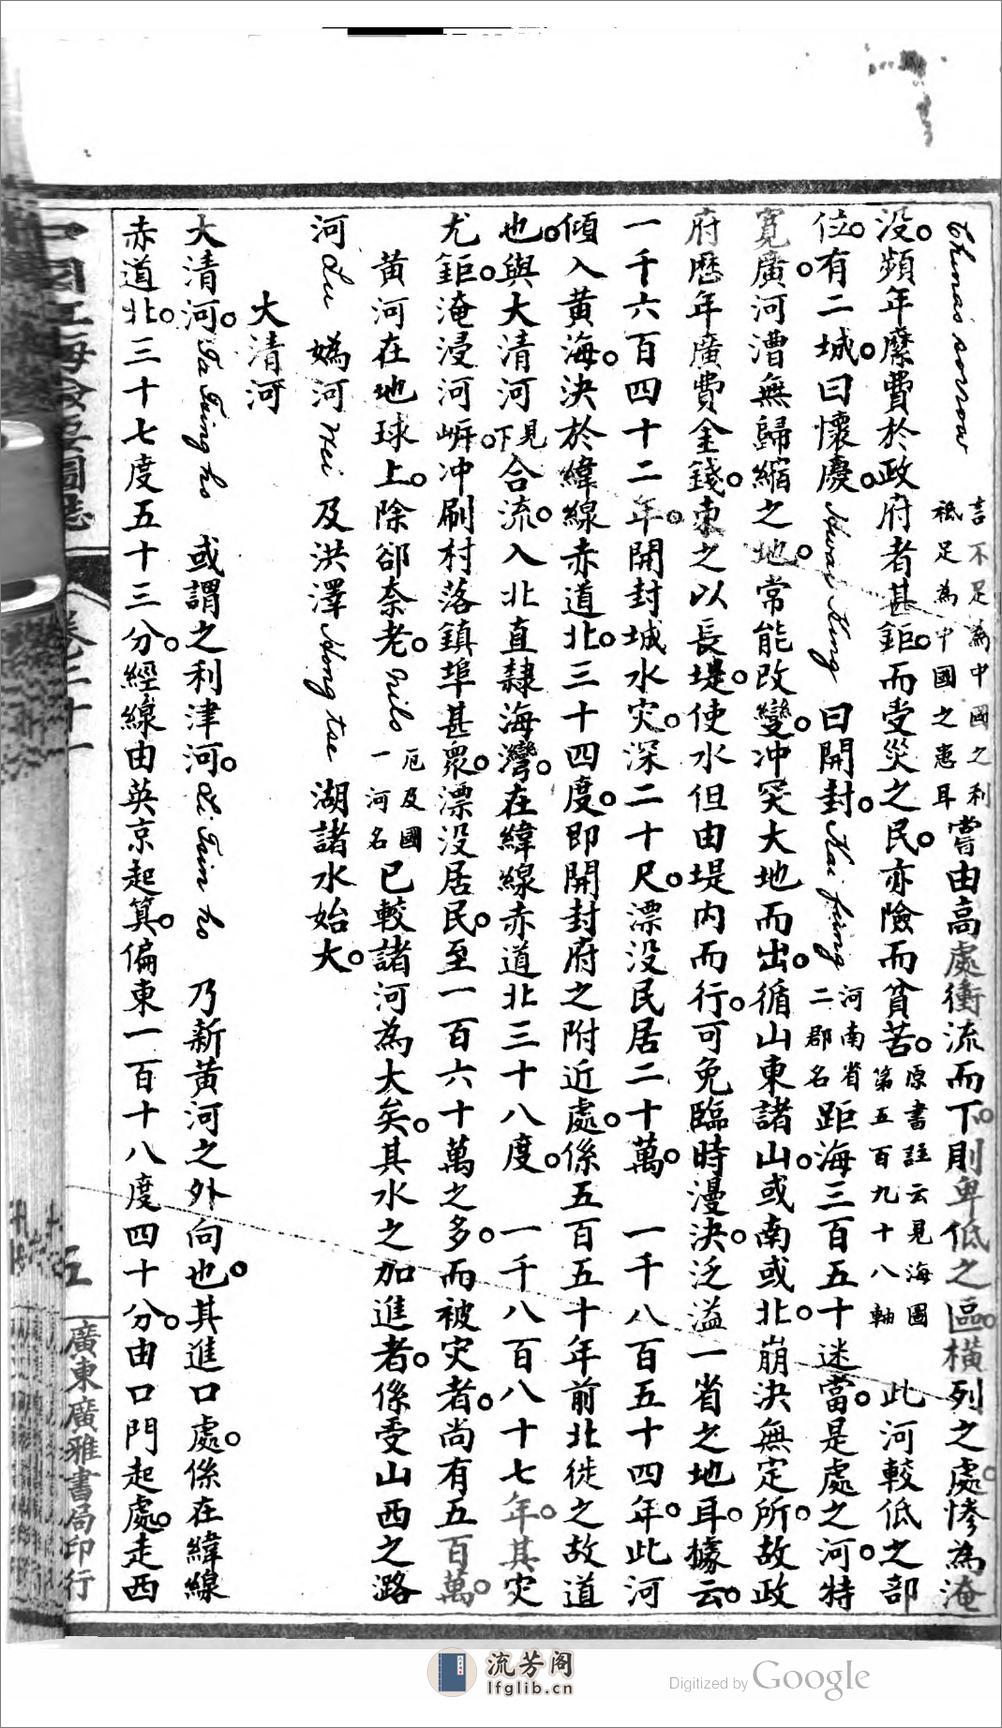 China's sorrow 言不足為中國之利祗足為中國之患耳嘗由高處衝流而下。則卑低之區。橫列之處。慘為淹
沒。頻年縻費於政府者甚鉅。而受災之民。亦險而貧苦。原書註云見海圖第五百九十八軸 此河較低之部
位。有二城。曰懷慶。Huai King 曰開封。Kai fung 河南省二郡名距海三百五十迷當。是處之河。特
寬廣。河漕無歸縮之地。常能改變。冲突大地而出。循山東諸山。或南或北。崩決無定所。故政
府歷年廣費金錢。束之以長堤。使水但由堤內而行。可免臨時漫決。泛溢一省之地耳。據云。
一千六百四十二年。開封城水灾。深二十尺。漂没民居二十萬。 一千八百五十四年。此河
傾入黃海。決於緯線赤道北。三十四度。即開封府之附近處。係五百五十年前北徙之故道
也。與大清河見下合流。入北直隸海灣。在緯線赤道北三十八度。 一千八百八十七年。其灾
尤鉅。淹浸河㟁。冲刷村落鎮埠甚衆。漂没居民。至一百六十萬之多。而被灾者。尚有五百萬。
黃河在地球上。除郤奈老。Nilo 厄及國一河名已較諸河為大矣。其水之加進者。係受山西之潞
河Lu 媯河Hei 及洪澤Hong tse 湖諸水始大。
大清河
大清河。Ta Tsing ho 或謂之利津河。Li Tsin ho 乃新黃河之外向也。其進口處。係在緯線
赤道北。三十七度五十三分。經線由英京起算。偏東一百十八度四十分。由口門起處。走西
卷二十一
五
廣東廣雅書局印行
流芳阁
lfglib.cn
Digitized by Google